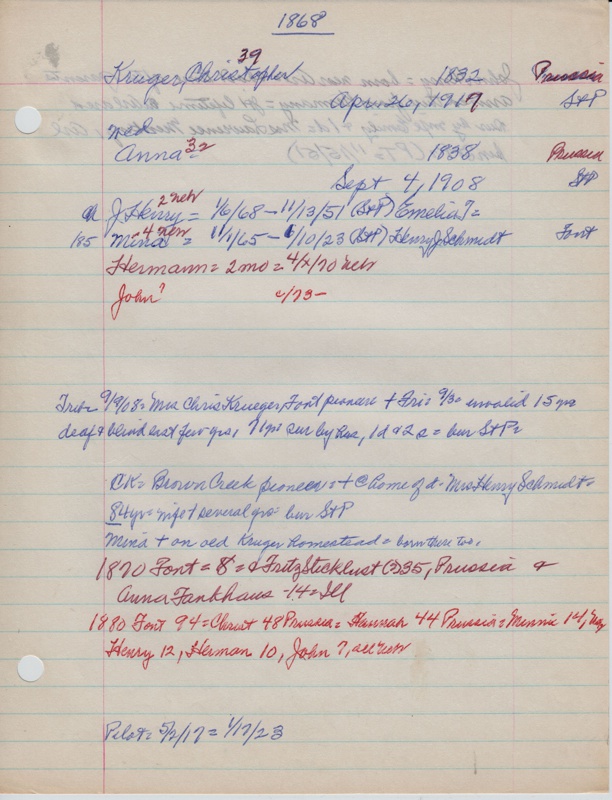 1868
39
Kruger, Christopher 1832 Prussia
Apr. 26, 1917 St P
Anna = 32 1838 Prussia
Sept 4, 1908 St P
J Henry = 2 neb 1/6/68 - 11/13/51 (St P) Emelia ? =
185 Mina = 4 neb 11/1/65 - 1/10/23 (St P) Henry J Schmidt Font
Hermann = 2 mo = 4/x/70 neb
John ? c/73 -
Trib = 9/9/08 = Mrs Chris Krueger, Font pioneer + Fri = 9/3 = invalid 15 yrs
deaf & blind last few yrs, 71 yrs sur by hus, 1 d & 2 s = bur St P =
CK = Brown Creek pioneer = + @ home of d = Mrs Henry Schmidt =
84 yr = wife + several yrs bur St P
Mina + on old Kruger homestead = born there too.
1870 Font = 8 = & Fritz (?) 35, Prussia &
Anna Fankhaus - 14 = Ill
1880 Font 94 = Christ 48 Prussia = Hannah 44 Prussia = Minnie 14,
Henry 12, Herman 10, John 7, all neb
Pilot = 5/2/17 = 1/17/23